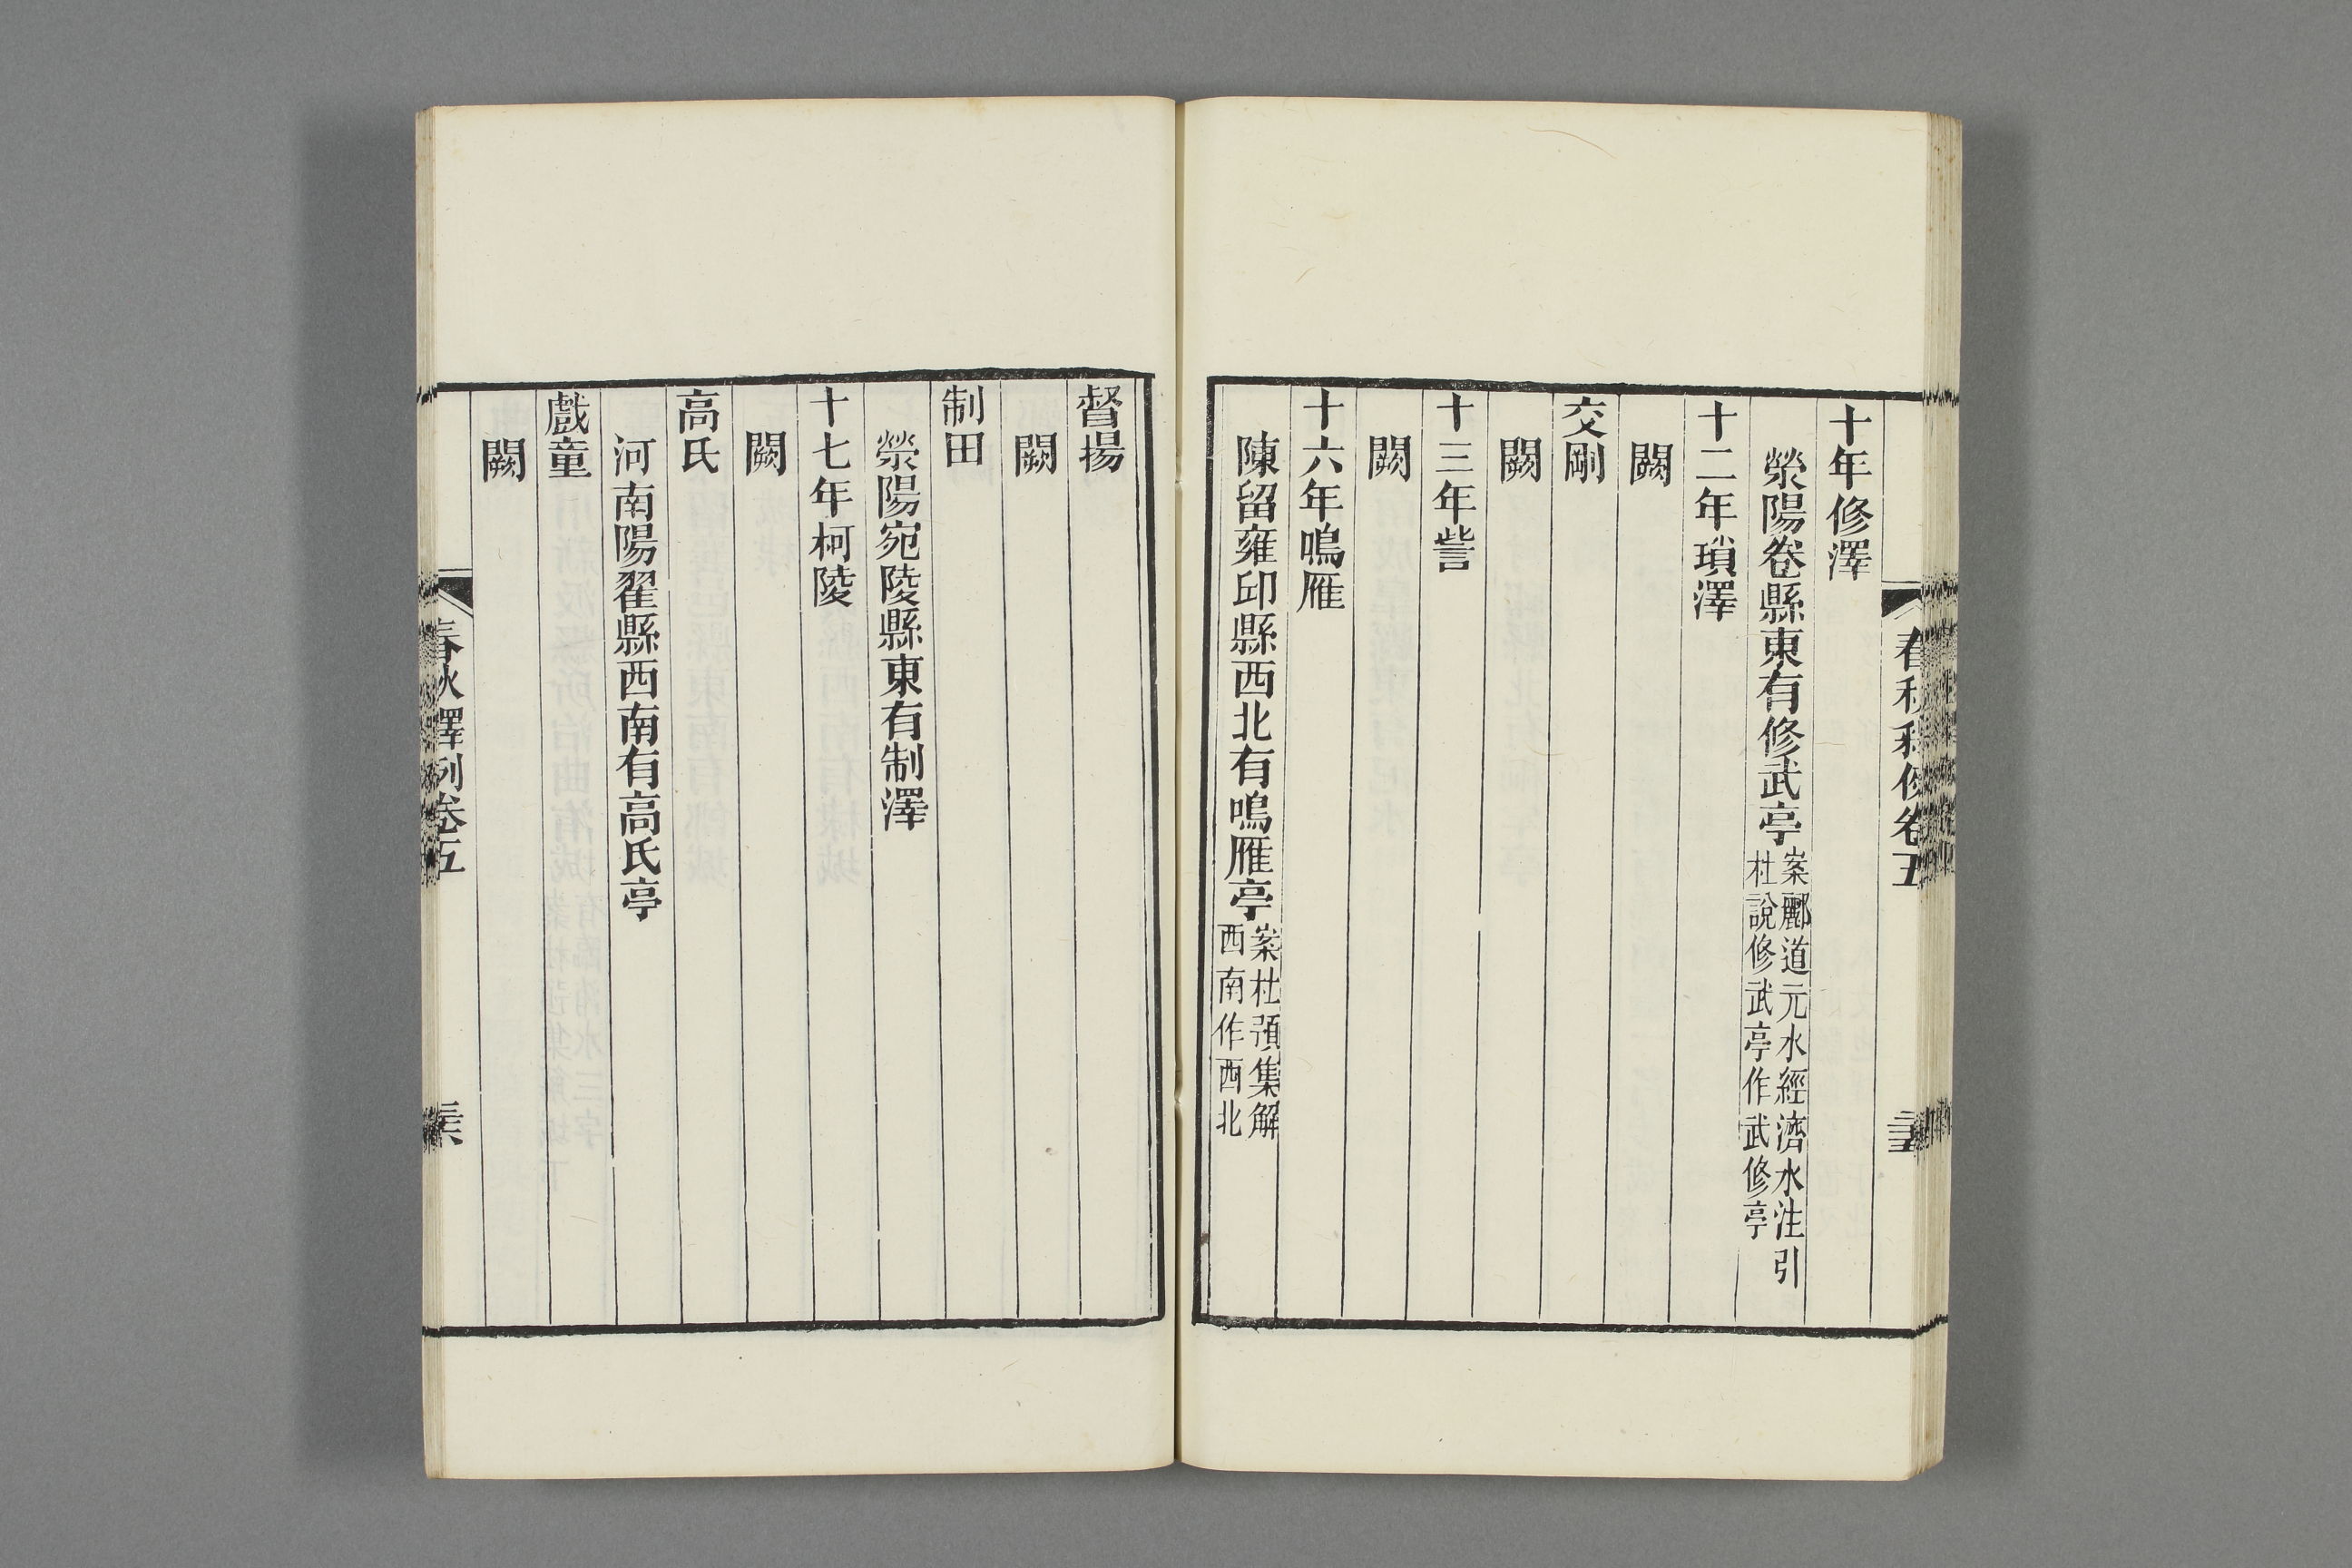 十年修澤
滎陽卷縣東有修武亭案酈道元水經濟水注引杜說修武亭作武修亭
十二年瑣澤
闕
交剛
闕
十三年訾
闕
十六年鳴雁
陳留雍邱縣西北有鳴雁亭案杜預集解西南作西北
督揚
闕
制田
滎陽宛陵縣東有制澤
十七年柯陵
闕
高氏
河南陽翟縣西南有高氏亭
戲童
闕
春秋釋例卷五